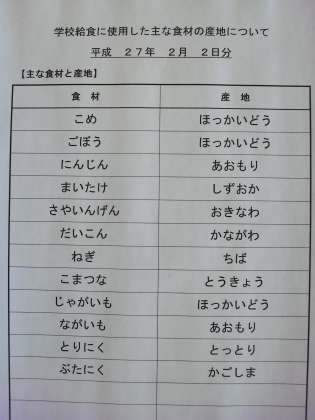 学校給食に使用した主な食材の産地について
平成　２７年　２月　２日分
【主な食材と産地】
食　材　産　地
こめ　ほっかいどう
ごぼう　ほっかいどう
にんじん　あおもり
まいたけ　しずおか
さやいんげん　おきなわ
だいこん　かながわ
ねぎ　ちば
こまつな　とうきょう
じゃがいも　ほっかいどう
ながいも　あおもり
とりにく　とっとり
ぶたにく　かごしま